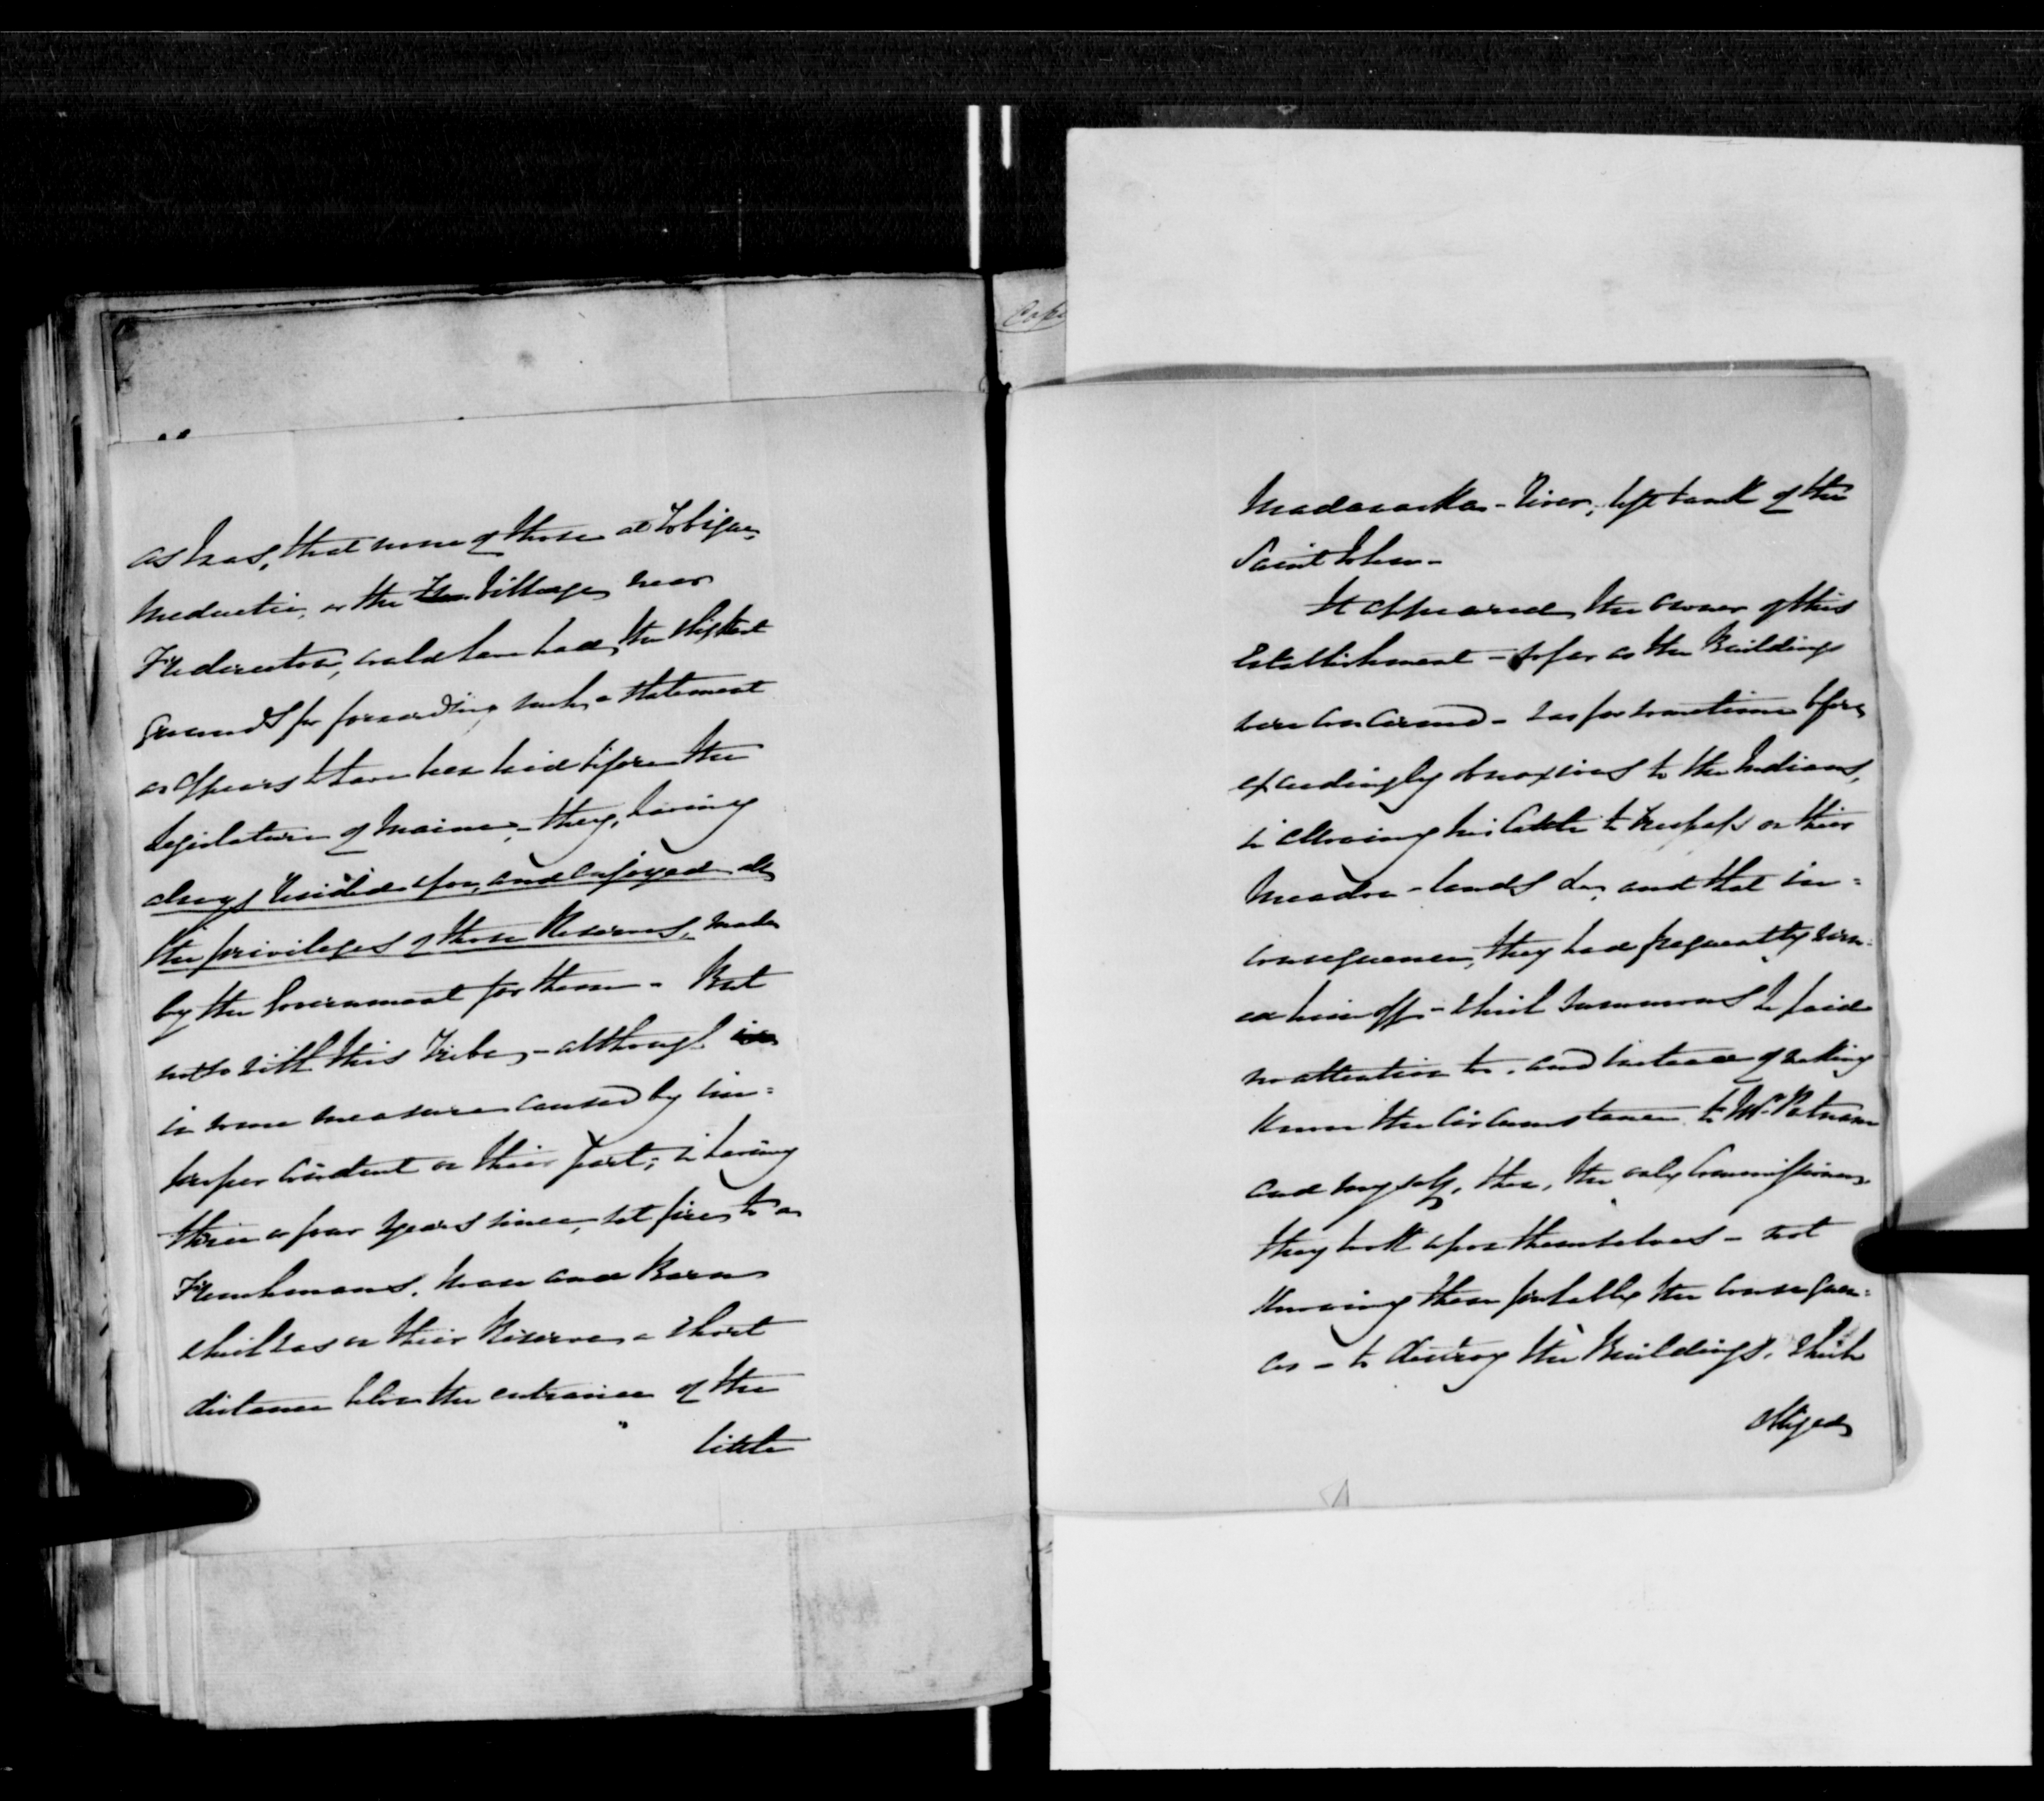 as was, that none of those at Tobique,
Meductic, or the Village near
Fredericton, could have had, the slightest
grounds for forwarding such a statement
as appears to have been laid before the
Legislature of Maine, - they, having
always resided upon, and enjoyed all
the privileges of those Reserves, made
by the Government for them - But
not so with this Tribe, - although
in some measure caused by im=
proper conduct on their part; in having
three or four years since, set fire to a
Frenchmans, House and Barn
which was on their Reserve a short
distance below the entrance of the
little
Madawaska - River, left bank of the
Saint John -
It appeared, the owner of this
Establishment - so far as the Buildings
were concerned - was for sometime before
exceedingly obnoxious to the Indians,
in allowing his Cattle to trespass on their
Meadow - lands &c, and that in=
consequence, they had frequently warn=
ed him off - which summons he paid
no attention to. and instead of making
known the Circumstance to Mr. Putnam
and myself, then, the only Commissioners,
they took upon themselves - not
knowing then probably the consequen=
ces - to destroy the Buildings, which
obliged